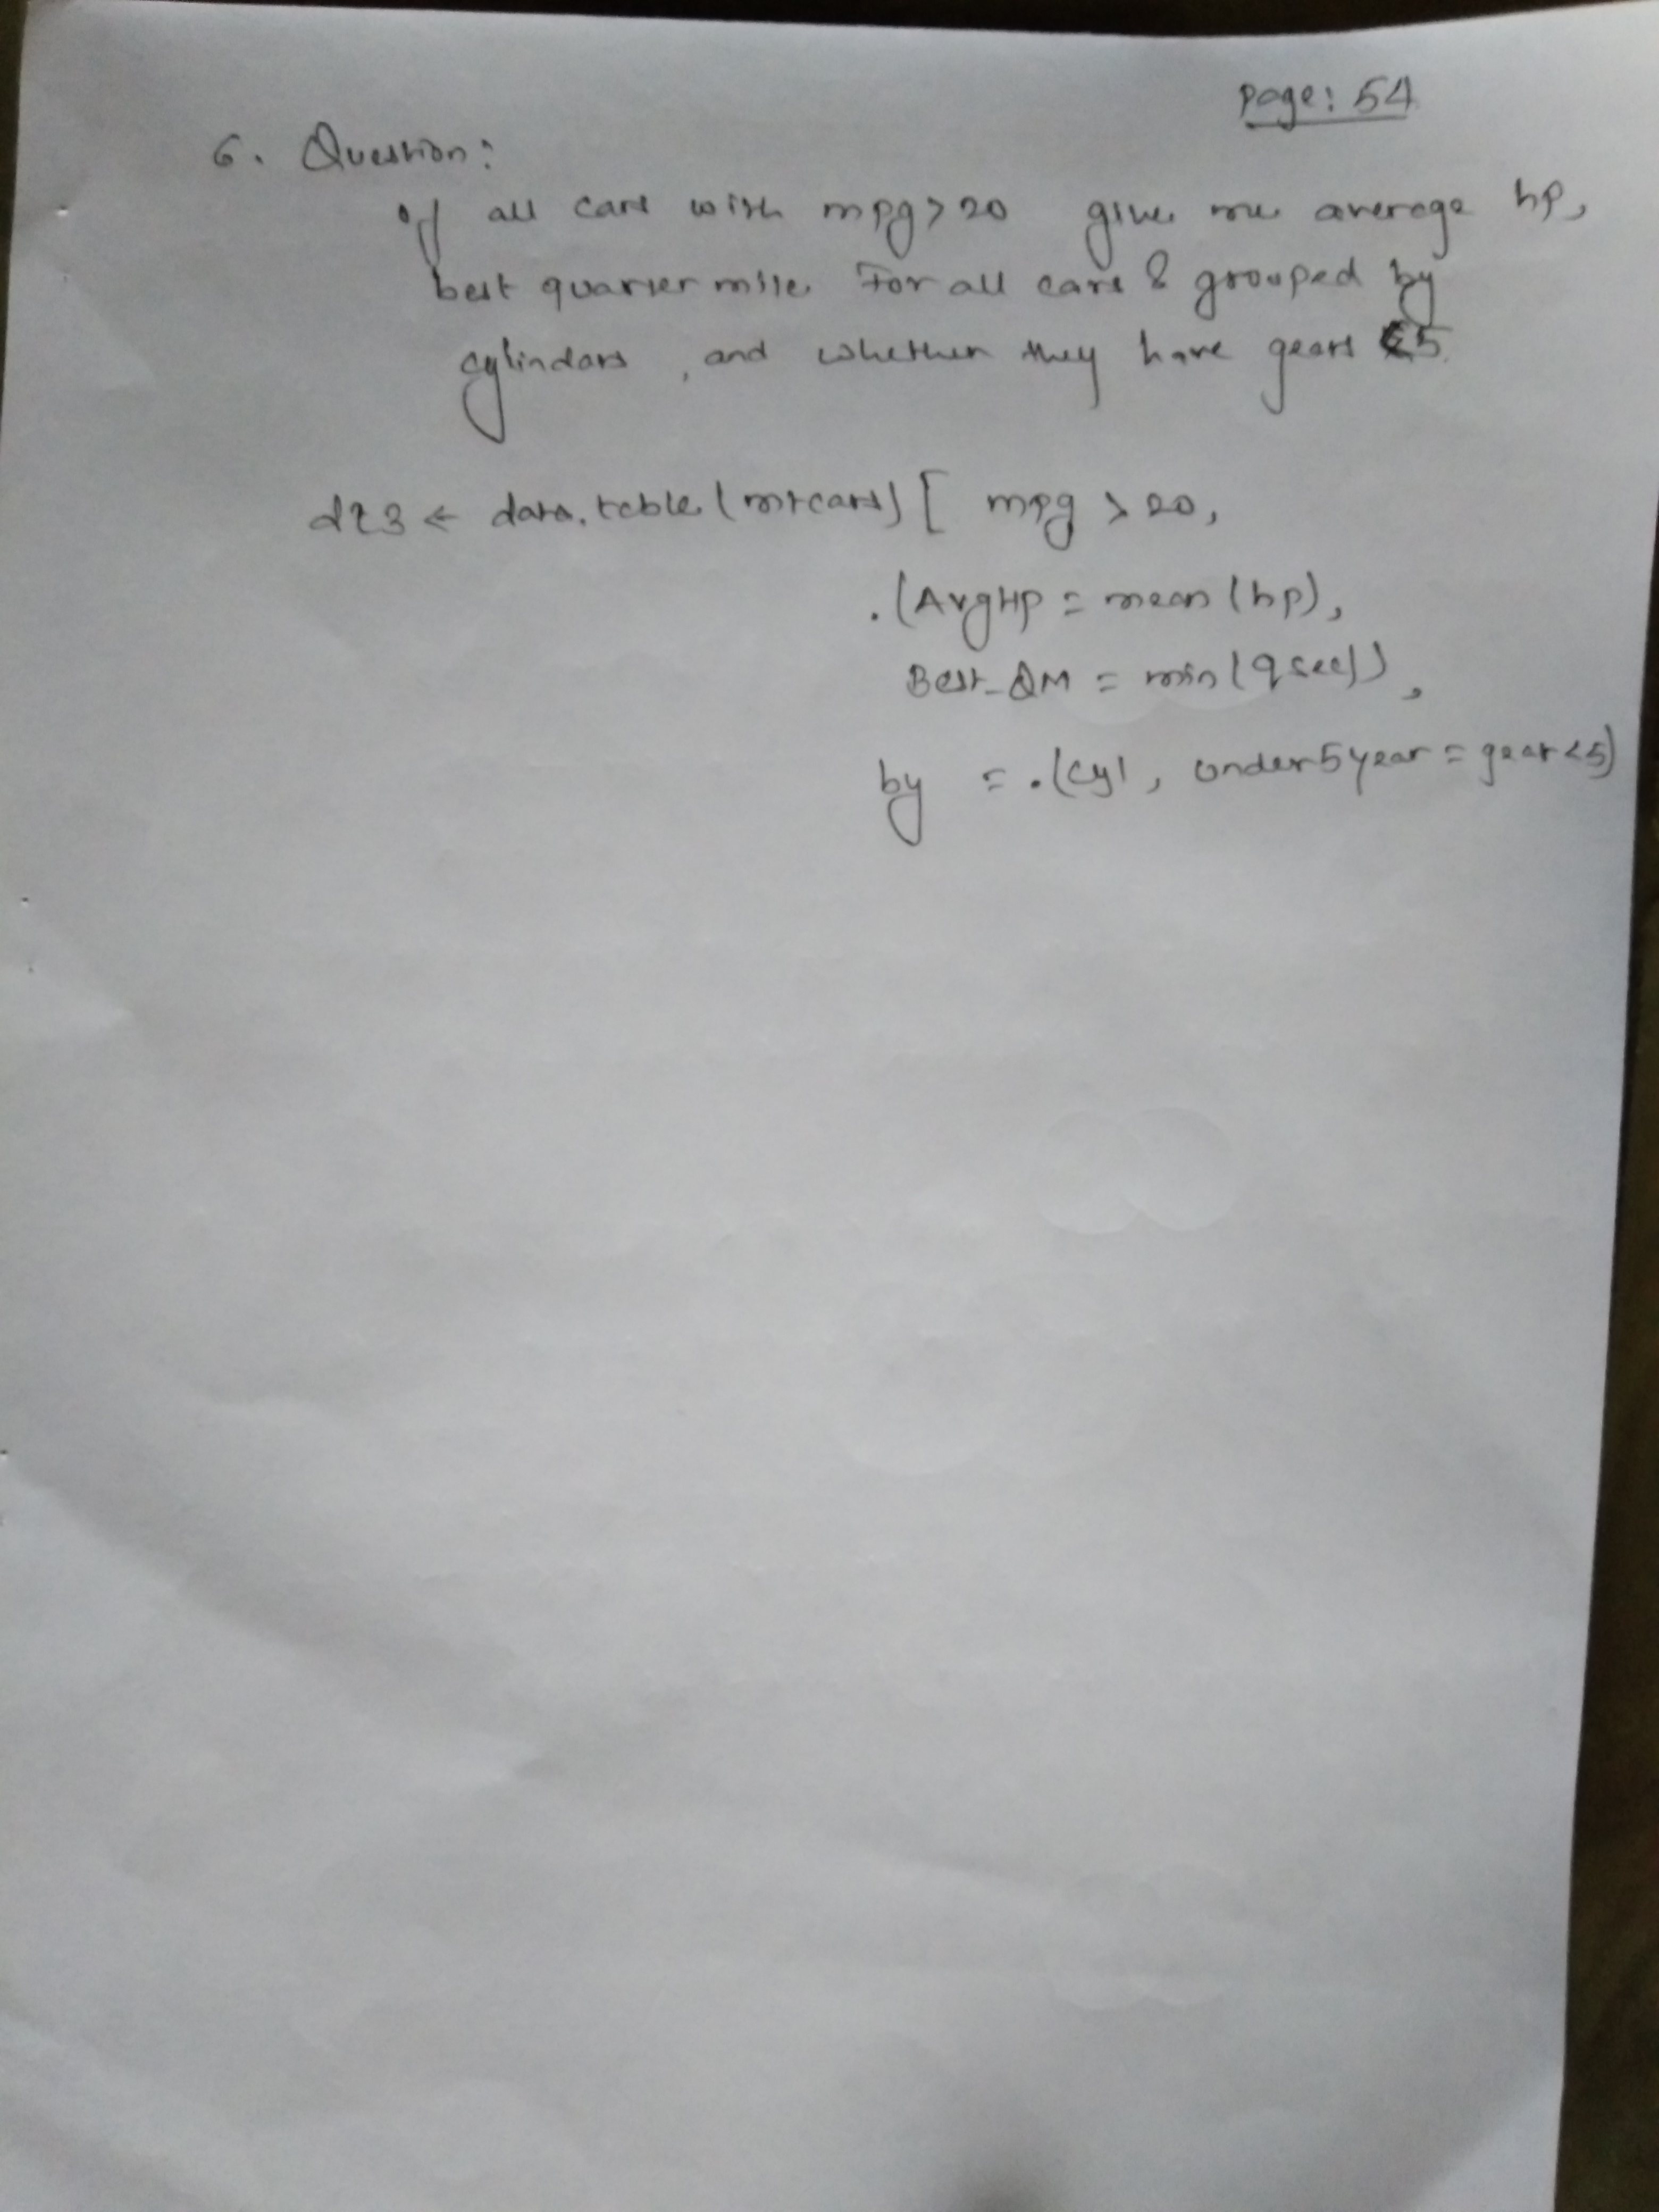 Page: 54
6. Question:
of all cars with mpg > 20 give me average hp,
best quarter mile For all cars & grouped by
cylindars, and whether they have gears <5
dt3 ← data.table (mtcars) [ mpg > 20,
.(AvgHP = mean (hp),
Best_QM = min (qsec)),
by = .(cyl, under5year = gear<5)